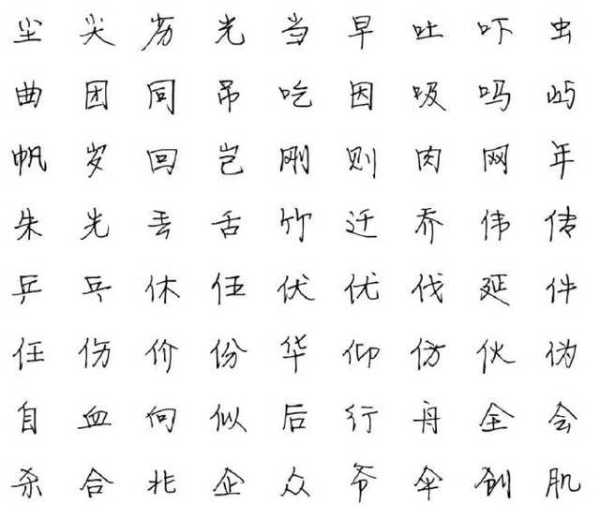 尘 尖 劣 光 当 早 吐 吓 虫
曲 团 同 吊 吃 因 吸 吗 屿
帆 岁 回 岂 刚 则 肉 网 年
朱 先 丢 舌 竹 迁 乔 伟 传
乒 乓 休 伍 伏 优 伐 延 件
任 伤 价 份 华 仰 仿 伙 伪
自 血 向 似 后 行 舟 全 会
杀 合 兆 企 众 爷 伞 创 肌